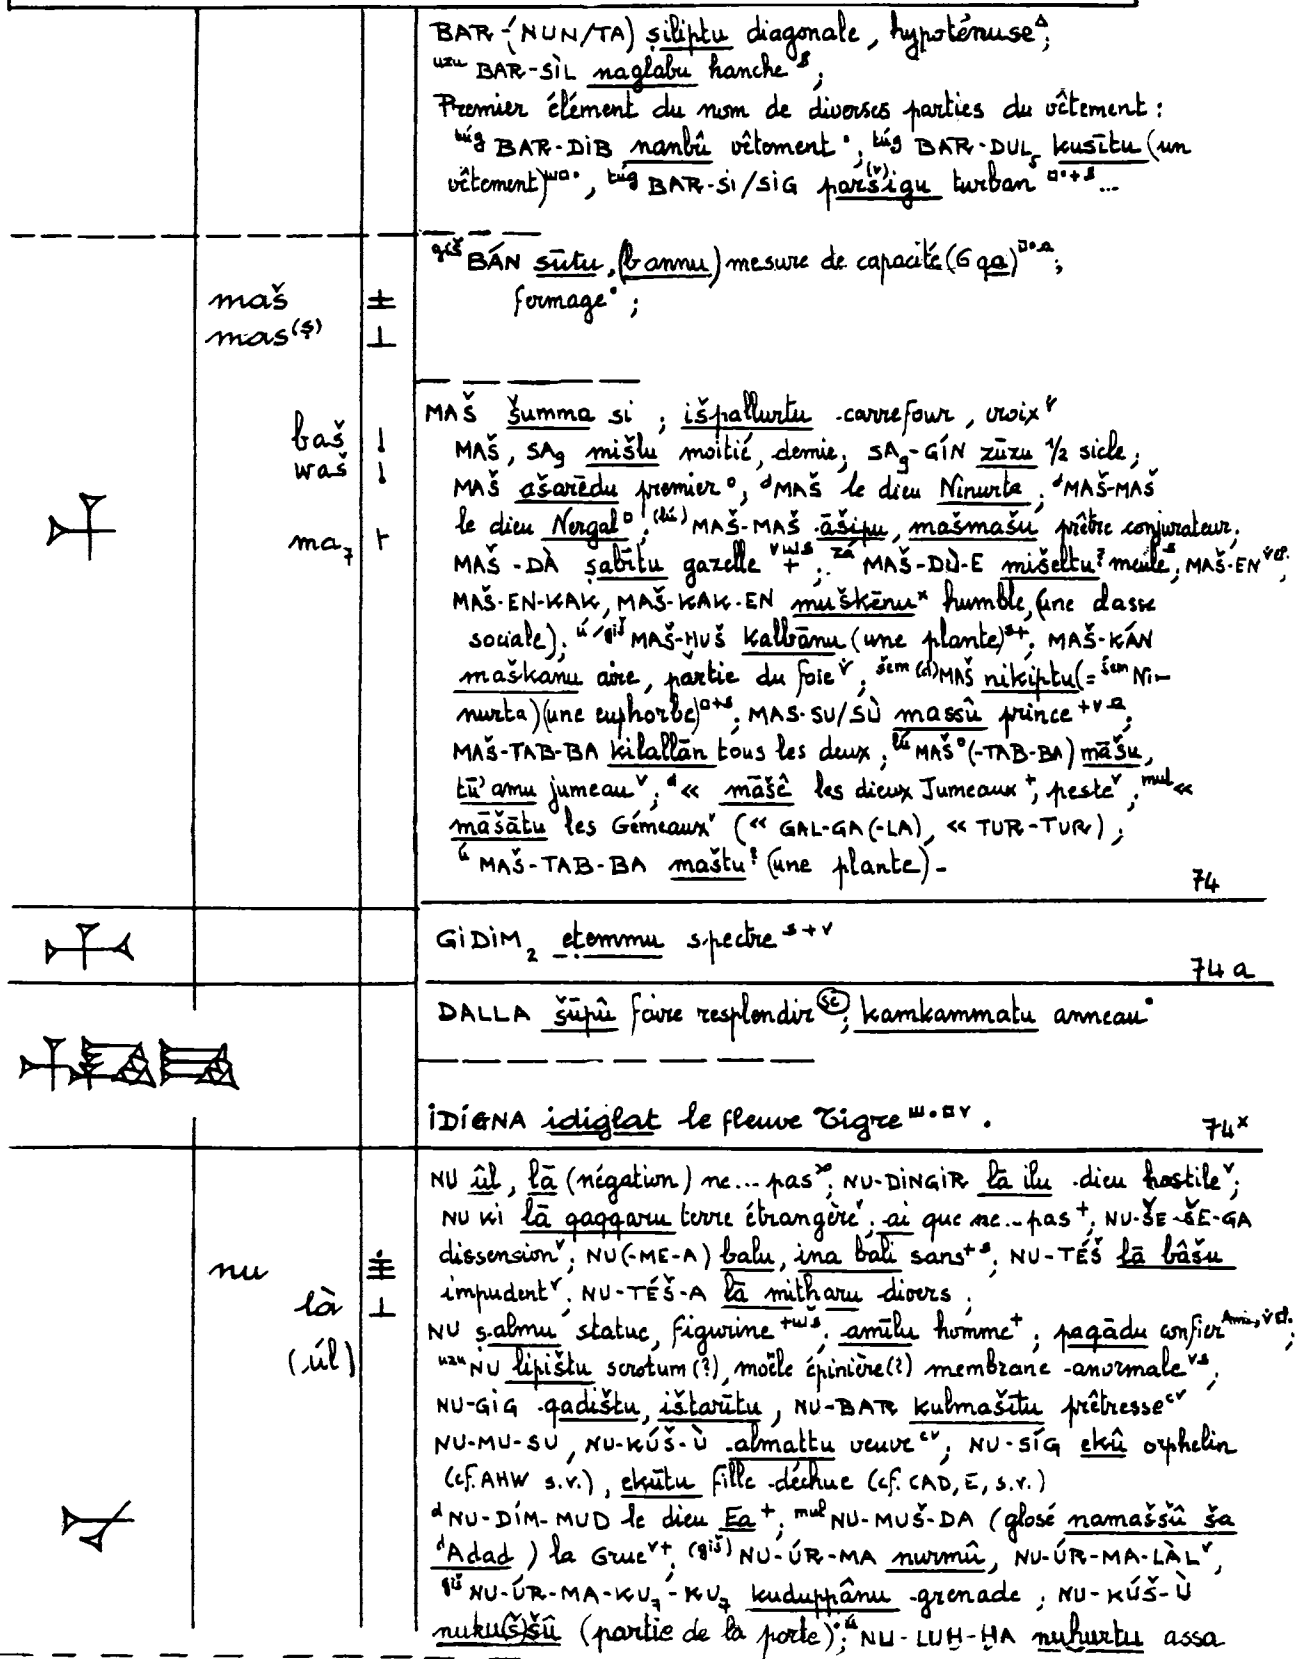 BAR-(NUN/TA) ṣiliptu diagonale, hypoténuse;
uzu BAR-SÌL naglabu hanche;
Premier élément du nom de diverses parties du vêtement :
túg BAR-DIB nanbû vêtement; túg BAR-DUL₅ kusītu (un
vêtement), túg BAR-SI/SIG paršigu turban ...
giš BÁN sūtu, (bannu) mesure de capacité (6 qa);
fermage;
maš ±
mas(ṣ) ⊥
MAŠ šumma si ; išpallurtu carrefour, croix
baš
MAŠ, SA₉ mišlu moitié, demie; SA₉-GÍN zūzu 1/2 sicle;
waš
MAŠ ašarēdu premier, dMAŠ le dieu Ninurta; dMAŠ-MAŠ
le dieu Nergal; (lú) MAŠ-MAŠ āšipu, mašmašu prêtre conjurateur,
ma₇
MAŠ-DÀ ṣabītu gazelle; zá MAŠ-DÙ-E mišeltu? meule; MAŠ-EN
MAŠ-EN-KAK, MAŠ-KAK-EN muškēnu humble, (une classe
sociale); ú/giš MAŠ-HUŠ kalbānu (une plante); MAŠ-KÁN
maškanu aire, partie du foie; šem (d)MAŠ nikiptu (= šem Ni-
nurta) (une euphorbe); MAS-SU/SÙ massû prince;
MAŠ-TAB-BA kilallān tous les deux; lú MAŠ (-TAB-BA) māšu,
tū'amu jumeau; d « māšê les dieux Jumeaux, peste; mul «
māšātu les Gémeaux (« GAL-GA(-LA), « TUR-TUR);
ú MAŠ-TAB-BA maštu? (une plante) -
74
GIDIM₂ eṭemmu spectre
74 a
DALLA šūpû faire resplendir; kamkammatu anneau
IDIGNA idiglat le fleuve Tigre.
74x
NU ûl, lā (négation) ne... pas; NU-DINGIR lā ilu dieu hostile;
NU KI lā qaqqaru terre étrangère; ai que ne... pas; NU-ŠE-ŠE-GA
dissension; NU(-ME-A) balu, ina bali sans; NU-TÉŠ lā bâšu
nu
impudent; NU-TÉŠ-A lā mitharu divers;
là ⊥
NU ṣalmu statue, figurine; amīlu homme; paqādu confier;
(úl)
uzu NU lipištu scrotum(?), moëlle épinière(?) membrane anormale;
NU-GIG qadištu, ištarītu, NU-BAR kulmašītu prêtresse
NU-MU-SU, NU-KÚŠ-Ù almattu veuve; NU-SÍG ekû orphelin
(cf. AHW s.v.), ekūtu fille déchue (cf. CAD, E, s.v.)
d NU-DÍM-MUD le dieu Ea; mul NU-MUŠ-DA (glosé namaššû ša
dAdad) la Grue; (giš) NU-ÚR-MA nurmû, NU-ÚR-MA-LÀL,
giš NU-ÚR-MA-KU₇-KU₇ kuduppânu grenade; NU-KÚŠ-Ù
nuku(š)šû (partie de la porte); ú NU-LUḪ-ḪA nuḫurtu assa